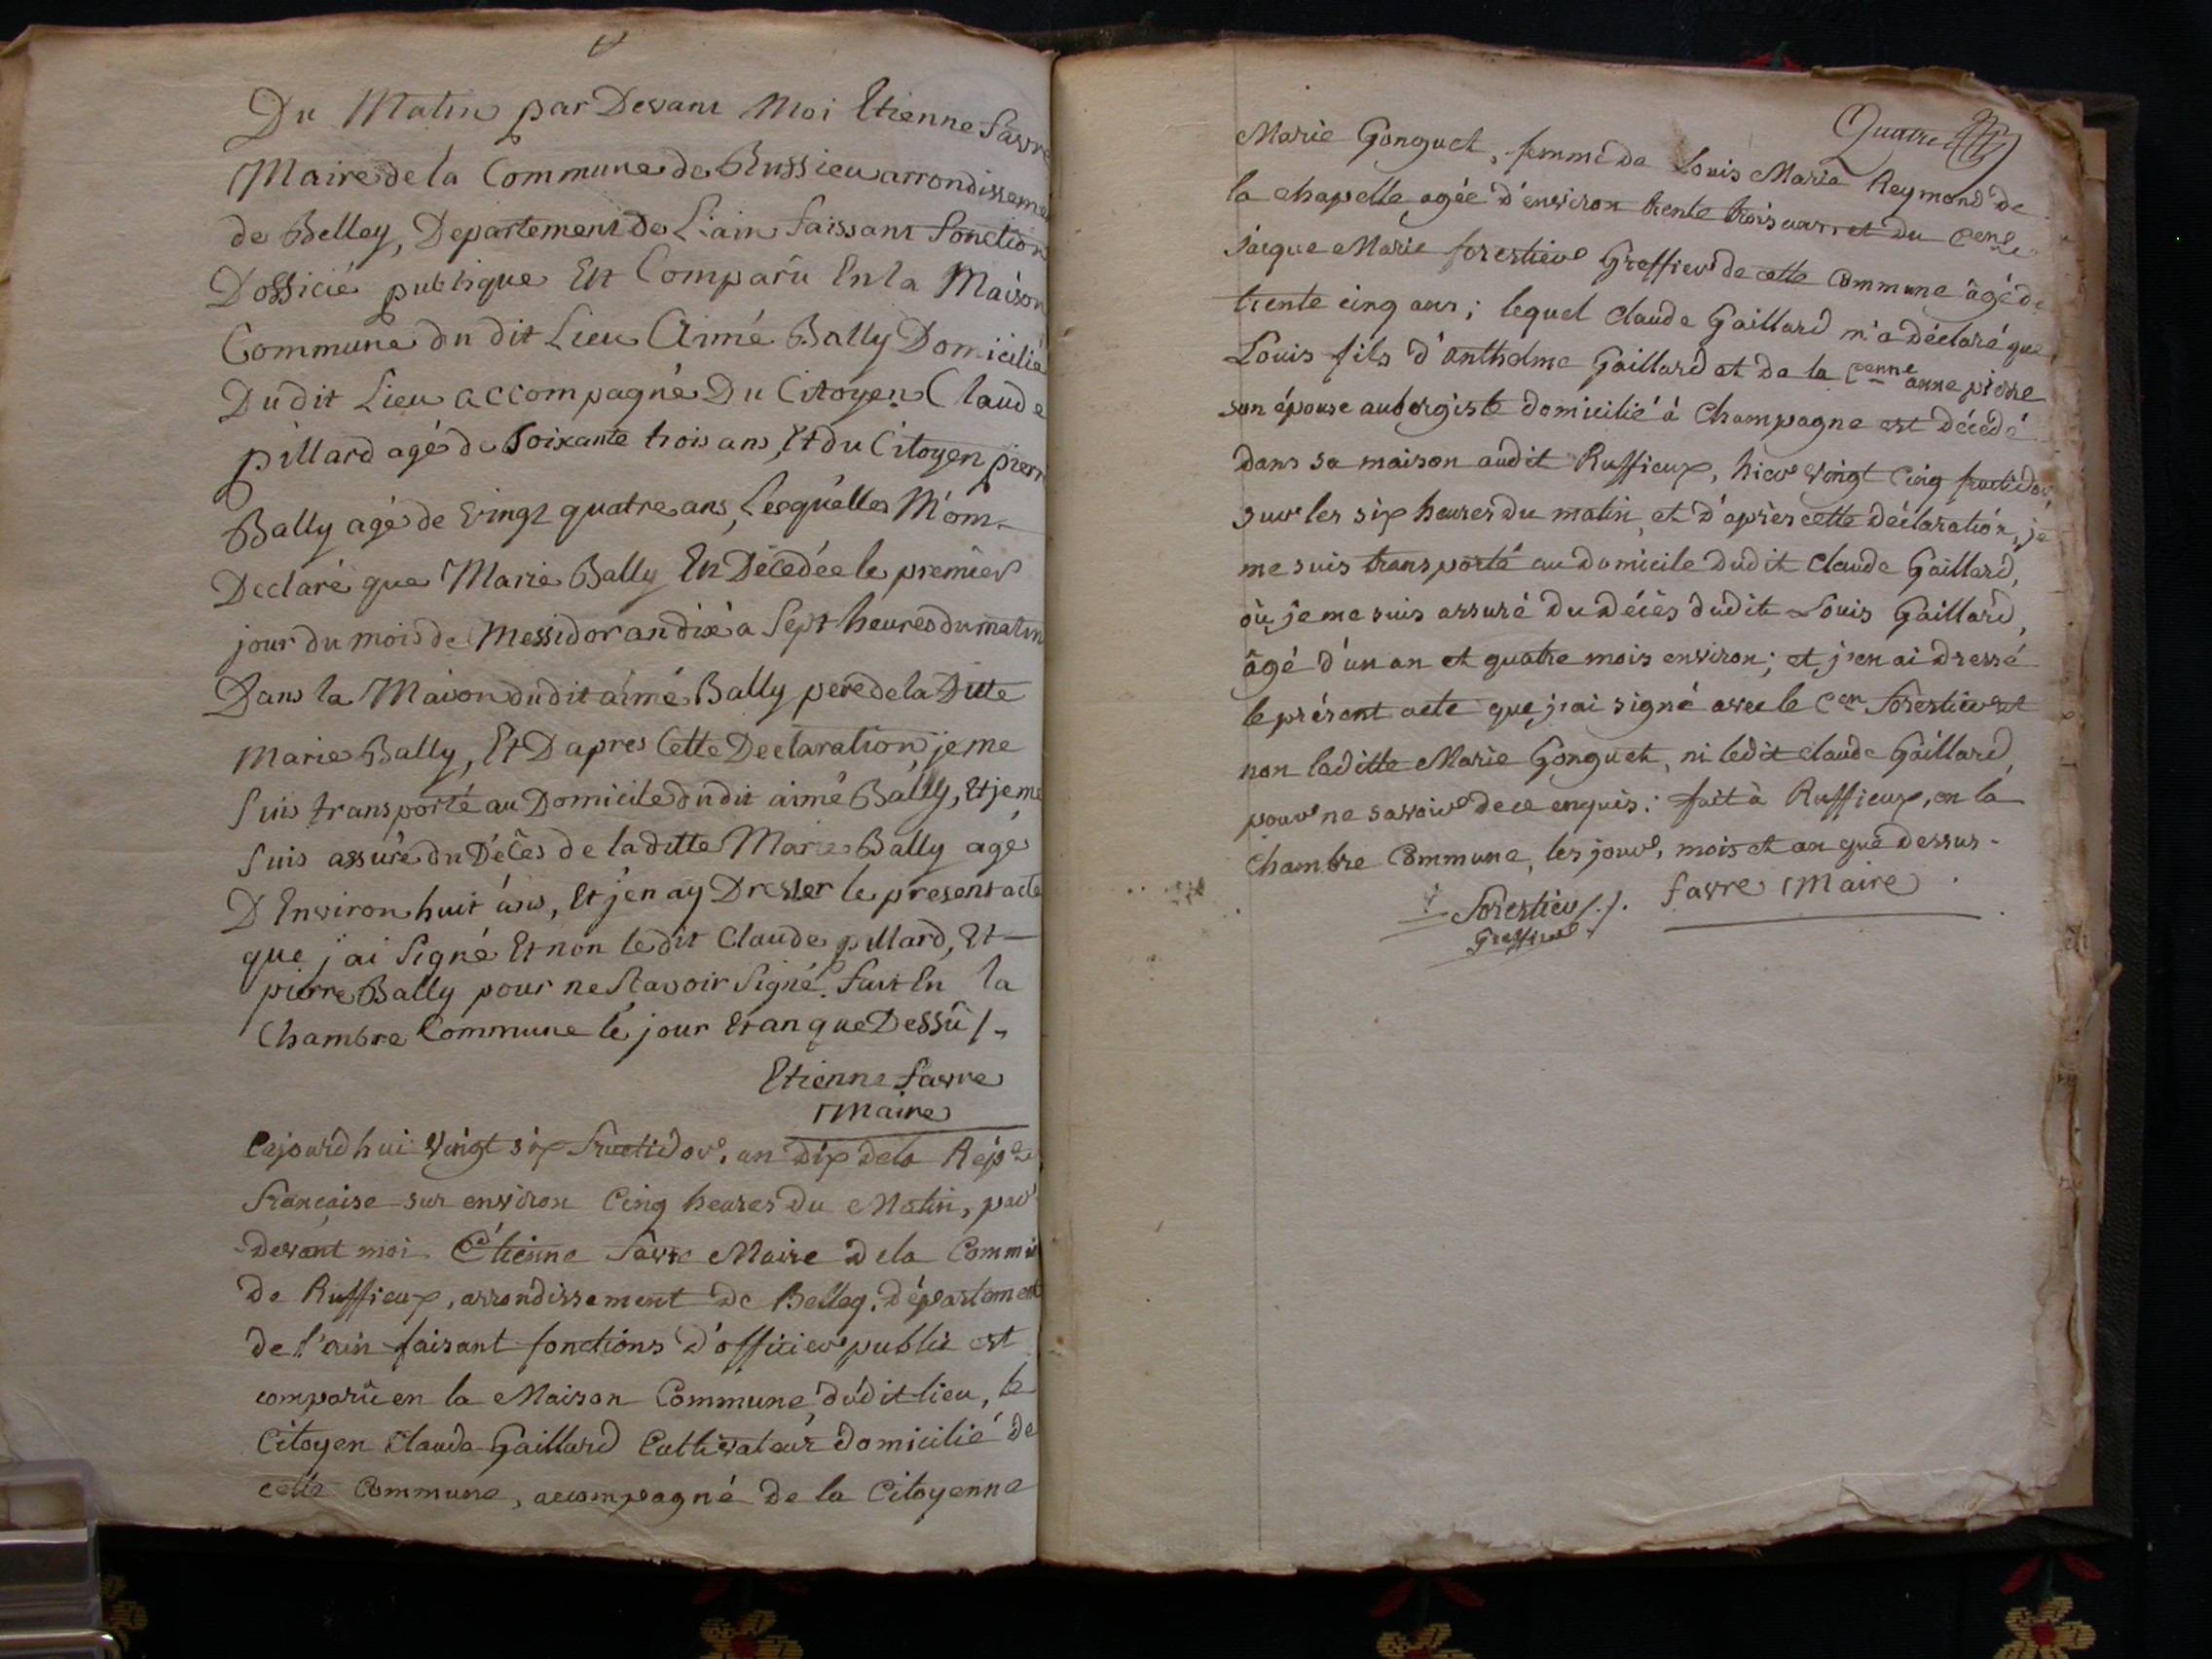 Du Matin par Devant Moi Etienne favre
Maire de la Commune de Russieu arrondisseme
de Belley, Departement de L'ain faissant fonction
Dofficié publique Est Comparû En la Maison
Commune du dit Lieu Aimé Bally Domicilié
Du dit Lieu accompagné Du Citoyen Claude
pillard agé de Soixante trois ans, Et du Citoyen pierr
Bally agé de Vingt quatre ans, Lesquelles M'om
Declaré que Marie Bally En Décedée le premier
jour du mois de Messidor an dix a Sept heures du matin
Dans la Maison du dit aimé Bally pere de la Ditte
Marie Bally, Et D apres Cette Declaration, je me
Suis transporté au Domicile du dit aimé Bally, Et je me
Suis assuré du Décès de la ditte Marie Bally agé
D Environ huit ans, Et j'en ay Dresser le present acte
que j'ai Signé Et non le dit Claude pillard, Et
pierre Bally pour ne Scavoir Signé. fait En la
Chambre Commune le jour Et an que Dessû /.
Etienne favre
Maire
Cejourd hui vingt six fructidor, an dix de la Répe
francaise sur environ Cinq heures du Matin, par
devant moi Etienne favre Maire de la Commu
de Ruffieux, arrondissement de Belley, département
de l'ain faisant fonctions d'officier public est
comparû en la Maison Commune dudit lieu, le
Citoyen Claude Gaillard Cultivateur domicilié de
cette Commune, accompagné de la Citoyenne
Quatre
Marie Gonguet, femme de Louis Marie Reymond de
la chapelle agée d'environ trente trois ans, et du Cen
Jacque Marie forestier Greffier de cette Commune âgé de
trente cinq ans; lequel Claude Gaillard m'a déclaré que
Louis fils d'anthelme Gaillard et de la Cenne anne
son épouse aubergiste domicilié à Champagne est décédé
dans sa maison audit Ruffieux, hier vingt Cinq fructidor
sur les six heures du matin, et d'après cette déclaration, je
me suis transporté au domicile dudit Claude Gaillard,
où je me suis assuré du décès dudit Louis Gaillard,
âgé d'un an et quatre mois environ; et j'en ai dressé
le présent acte que j'ai signé avec le Cen forestier et
non laditte Marie Gonguet, ni ledit Claude Gaillard,
pour ne savoir de ce enquis: fait à Ruffieux, en la
Chambre Commune, les jour, mois et an que dessus.
forestier /./. favre Maire
Greffier